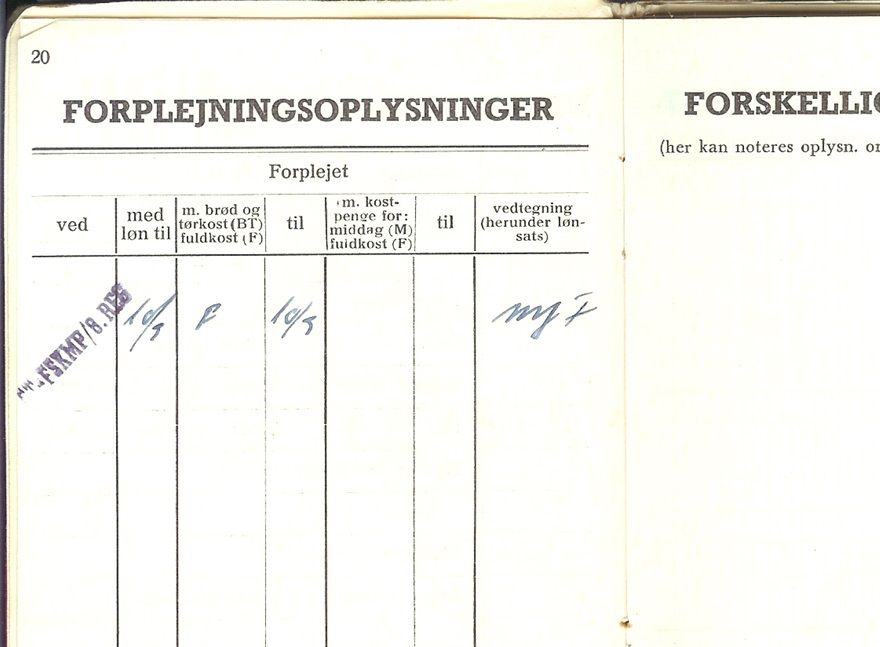 20
FORPLEJNINGSOPLYSNINGER
Forplejet
ved
med
løn til
m. brød og
tørkost (BT)
fuldkost (F)
til
m. kost-
penge for:
middag (M)
fuldkost (F)
til
vedtegning
(herunder løn-
sats)
FSKMP/8. REG
10/9
F
10/9
FORSKELLIG
(her kan noteres oplysn. o